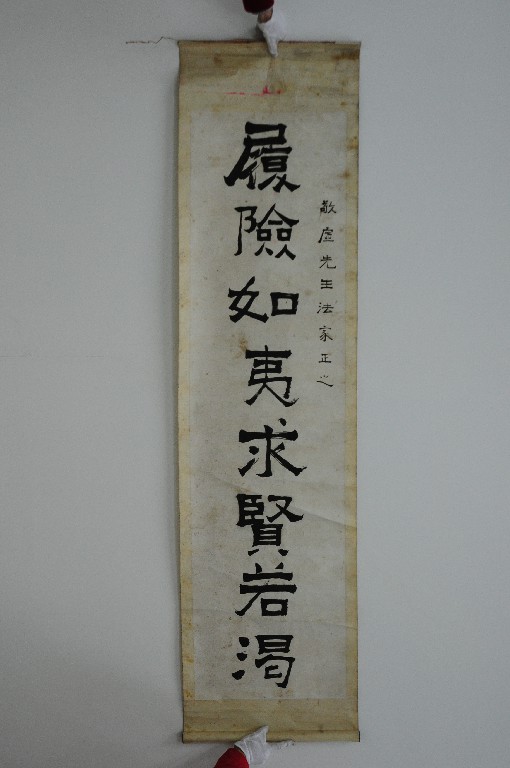 敬虛先生法家正之
履險如夷求賢若渴